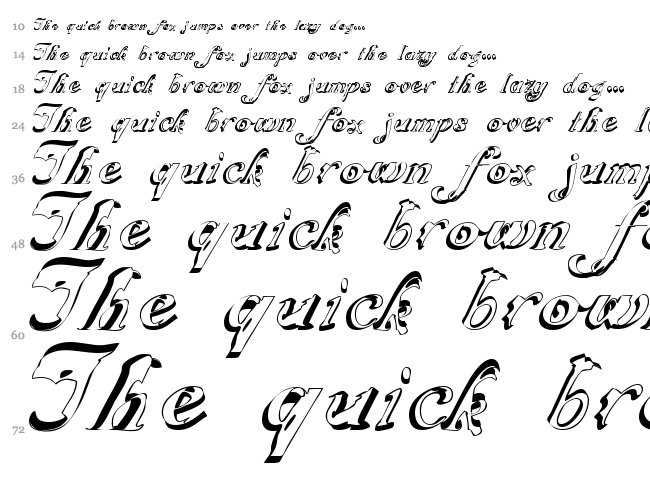 10 The quick brown fox jumps over the lazy dog...
14 The quick brown fox jumps over the lazy dog...
18 The quick brown fox jumps over the lazy dog...
24 The quick brown fox jumps over the l
36 The quick brown fox jump
48 The quick brown fo
60 The quick brow
72 The quick bro